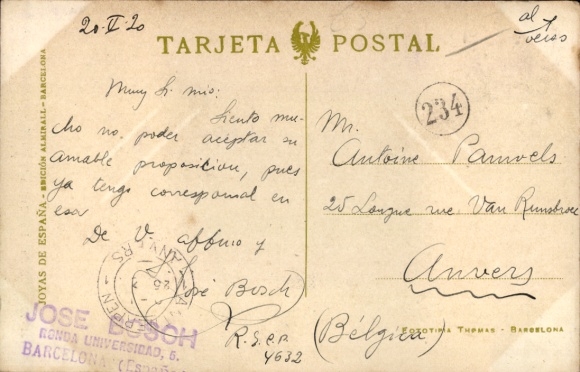 20-II-20
al verso
TARJETA POSTAL
JOYAS DE ESPAÑA - EDICIÓN ALMIRALL - BARCELONA
Muy Sr mío:
Siento mu-
cho no poder aceptar su
amable proposición, pues
ya tengo corresponsal en
esa
De V. affmo y
José Bosch
R.S.C.P.
4632
JOSE BOSCH
RONDA UNIVERSIDAD, 6.
BARCELONA (España)
ANVERS
ANTWERPEN
234
Mr.
Antoine Pauwels
25 Longue rue Van Ruusbroec
Anvers
(Bélgica)
FOTOTIPIA THOMAS - BARCELONA